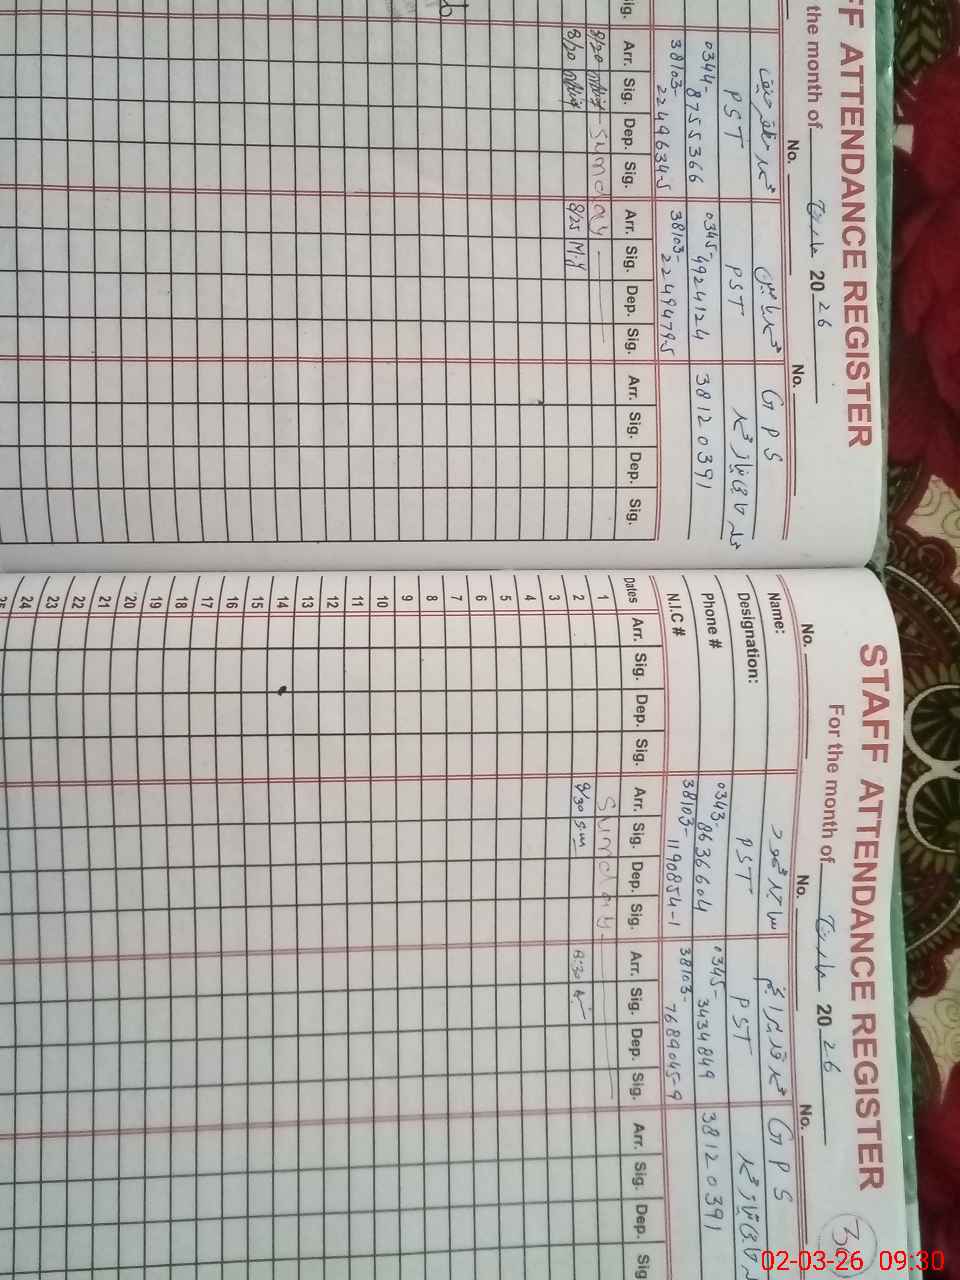 FF ATTENDANCE REGISTER
the month of مارچ 20 26
No. No.
محمد مظفر حنیف محمد یامین G P S
PST PST
0344-8755366 0345-4924124 38120391
38103-2249634-5 38103-2249479-5
Sig. Arr. Sig. Dep. Sig. Arr. Sig. Dep. Sig. Arr. Sig. Dep. Sig.
8/20 Sunday
8/20 8/25 M.Y
STAFF ATTENDANCE REGISTER
30
For the month of مارچ 20 26
No. No. No.
Name: ساجد محمود G P S
Designation: PST PST
Phone # 0343-8636604 0345-3434849 38120391
N.I.C # 38103-1190854-1 38103-7689045-9
Dates Arr. Sig. Dep. Sig. Arr. Sig. Dep. Sig. Arr. Sig. Dep. Sig. Arr. Sig. Dep. Sig
1 Sunday
2 8/30 8:30
3
4
5
6
7
8
9
10
11
12
13
14
15
16
17
18
19
20
21
22
23
24
25
02-03-26 09:30